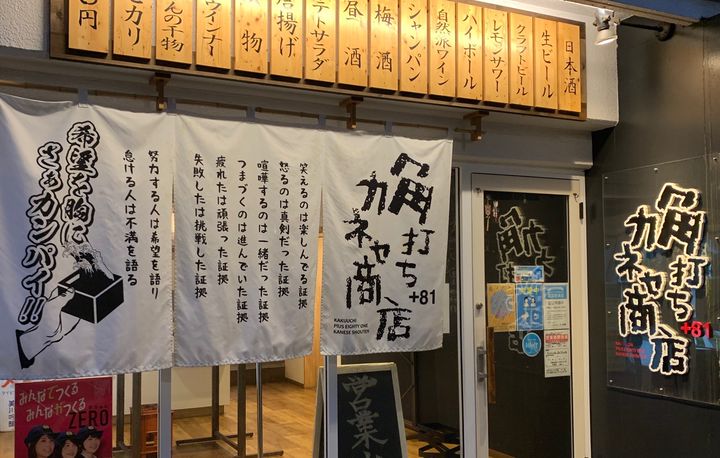 日本酒
生ビール
クラフトビール
レモンサワー
ハイボール
自然派ワイン
シャンパン
梅酒
昼酒
ポテトサラダ
唐揚げ
物
ウインナー
んの干物
セカリ
円
角打ち
カネヤ商店
+81
KAKUUCHI
PlUS EIGHTY ONE
KANESE SHOUTER
笑えるのは楽しんでる証拠
怒るのは真剣だった証拠
喧嘩するのは一緒だった証拠
つまづくのは進んでいた証拠
疲れたは頑張った証拠
失敗したは挑戦した証拠
努力する人は希望を語り
怠ける人は不満を語る
希望を胸に
さぁカンパイ!!
角打ち
カネヤ商店
+81
PlUS EIGHTY ONE
KANESE SHOUTER
営業
みんなでつくる
みんながつくる
ZERO